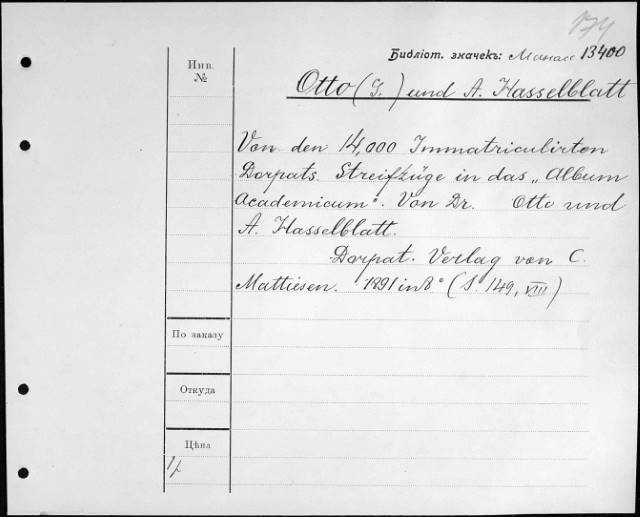 174
Библіот. значекъ: Манас 13400
Инв.
№
Otto (G.) und A. Hasselblatt
Von den 14,000 Immatriculirten
Dorpats. Streifzüge in das „Album
Academicum". Von Dr. Otto und
A. Hasselblatt.
Dorpat. Verlag von C.
Mattiesen. 1891 in 8° (S. 149, VIII)
По заказу
Откуда
Цѣна